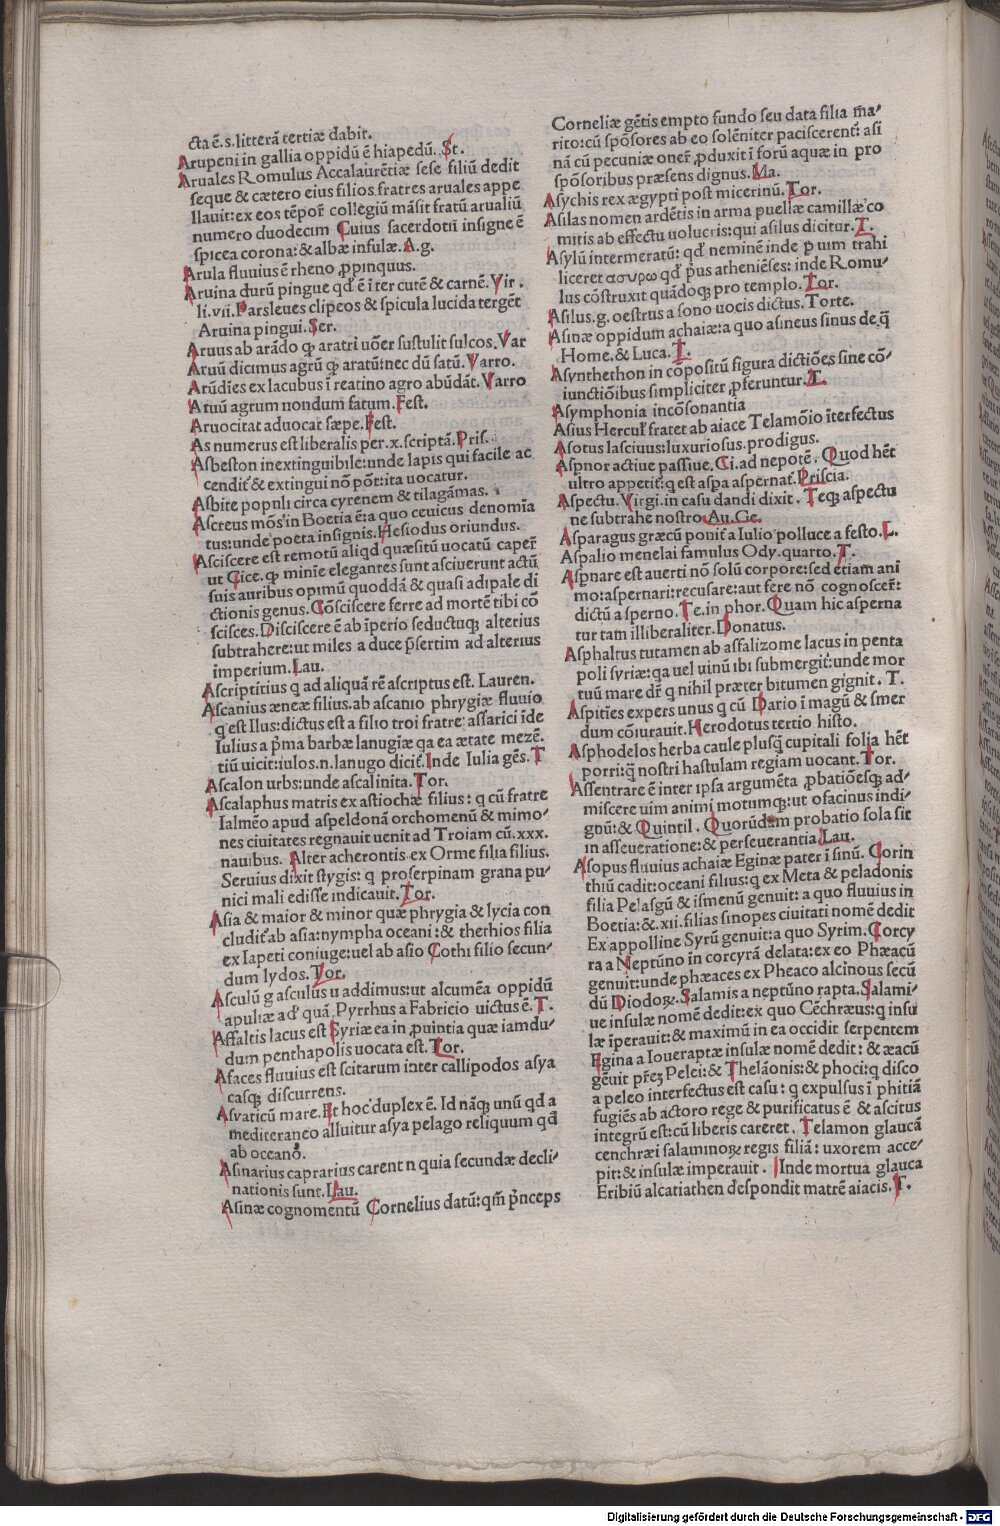 cta ē.s.litterā tertiæ dabit.
Arupeni in gallia oppidū ē hiapedū. St.
Aruales Romulus Accalaurētiæ sese filiū dedit
seque & cætero eius filios fratres aruales appe
llauit:ex eos tēpor̄ collegiū māsit fratū arualiū
numero duodecim Cuius sacerdotii insigne ē
spicea corona:& albæ infulæ. A.g.
Arula fluuius ē rheno ꝓpinquus.
Aruina durū pingue qď ē īter cutē & carnē. Vir.
li.vii. Parsleues clipeos & spicula lucida tergēt
Aruina pingui. Ser.
Aruus ab arādo qꝫ aratri uōer sustulit sulcos. Var
Aruū dicimus agrū qꝫ aratū:nec dū satū. Varro.
Arūdīes ex lacubus ī reatino agro abūdāt. Varro
Aruū agrum nondum satum. Fest.
Aruocitat aduocat sæpe. Fest.
As numerus est liberalis per.x.scriptā. Pris.
Asbeston inextinguibile:unde lapis qui facile ac
cendit̄ & extingui nō pōt:ita uocatur.
Asbite popnli circa cyrenem & tilagāmas.
Ascreus mōs in Boetia ē:a quo ceuicus denomia
tus:unde poeta insignis. Hesiodus oriundus.
Asciscere est remotū aliqd quæsitū uocatū caper̄
ut Cice.qꝫ minīe elegantes sunt asciuerunt actū
suis auribus opimū quoddā & quasi adipale di
ctionis genus. Cōsciscere ferre ad mortē tibi cō
scisces. Disciscere ē ab īperio seductuqꝫ alterius
subtrahere:ut miles a duce p̄sertim ad alterius
imperium. Lau.
Ascriptitius q ad aliquā rē ascriptus est. Lauren.
Ascanius æneæ filius.ab ascanio phrygiæ fluuio
q est Ilus:dictus est a filio troi fratre: assarici īde
Iulius a p̄ma barbæ lanugiæ qa ea ætate mezē.
tiū uicit:iulos.n.lanugo dicit̄. Inde Iulia gēs. T
Ascalon urbs:unde ascalinita. Tor.
Ascalaphus matris ex astiochæ filius: q cū fratre
Ialmēo apud aspeldonā orchomenū & mimo-
nes ciuitates regnauit uenit ad Troiam cū.xxx.
nauibus. Alter acherontis ex Orme filia filius.
Seruius dixit stygis: q proserpinam grana pu-
nici mali edisse indicauit. Tor.
Asia & maior & minor quæ phrygia & lycia con
cludit̄ ab asia:nympha oceani:& therhios filia
ex Iapeti coniuge:uel ab asio Cothi filio secun-
dum lydos. Tor.
Asculū g asculus u addimus:ut alcumēa oppidū
apuliæ ad quā Pyrrhus a Fabricio uictus ē. T.
Asfaltis lacus est Syriæ ea in ꝓuintia quæ iamdu-
dum penthapolis uocata est. Tor.
Asaces fluuius est scitarum inter callipodos asya
casqꝫ discurrens.
Asvaticū mare. Et hoc duplex ē. Id nāqꝫ unū qd a
mediteraneo alluitur asya pelago reliquum qd
ab oceano.
Asinarius caprarius carent n quia secundæ decli-
nationis sunt. Lau.
Asinæ cognomentū Cornelius datū:qm̄ p̄nceps
Corneliæ gētis empto fundo seu data filia ma-
rito:cū spōsores ab eo solēniter paciscerent̄: asi
nā cū pecuniæ oner̄ ꝓduxit ī forū aquæ in pro
spōsoribus præsens dignus. Ma.
Asychis rex ægypti post micerinū. Tor.
Asilas nomen ardētis in arma puellæ camillæ co
mitis ab effectu uolucris:qui asilus dicitur. T.
Asylū intermeratū: qď neminē inde ꝑ uim trahi
liceret ασυρω qď p̄us atheniēses: inde Romu-
lus cōstruxit quādoqꝫ pro templo. Tor.
Asilus.g.oestrus a sono uocis dictus. Torte.
Asinæ oppidum achaiæ:a quo asineus sinus de q̄
Home.& Luca. T.
Asynthethon in cōpositū figura dictiōes sine cō-
iunctiōibus simpliciter ꝓferuntur. T.
Asymphonia incōsonantia
Asius Hercul̄ frater ab aiace Telamōio īterfectus
Asotus lasciuus:luxuriosus.prodigus.
Aspnor actiue passiue. Ci.ad nepotē. Quod hēt
ultro appetit̄:q est aspa aspernat̄. Priscia.
Aspectu. Virgi.in casu dandi dixit. Teqꝫ aspectu
ne subtrahe nostro. Au.Ge.
Asparagus græcū ponit̄ a Iulio polluce a festo. L.
Aspalio menelai famulus Ody.quarto. T.
Aspnare est auerti nō solū corpore:sed etiam ani
mo:aspernari:recusare:aut fere nō cognoscer̄:
dictū a sperno. Te.in phor. Quam hic asperna
tur tam illiberaliter. Donatus.
Asphaltus tutamen ab asfalizome lacus in penta
poli syriæ:qa uel uinū ibi submergit̄:unde mor
tuū mare dr̄ q nihil præter bitumen gignit. T.
Aspitīes expers unus q cū Dario ī magū & smer
dum cōiurauit. Herodotus tertio histo.
Asphodelos herba caule plusq̄ cupitali folia hēt
porri:q̄ nostri hastulam regiam uocant. Tor.
Assentrare ē inter ipsa argumēta ꝓbatiōesqꝫ ad-
miscere uim animi motumqꝫ:ut ofacinus indi-
gnū:& Quintil. Quorūdam probatio sola sit
in asseueratione:& perseuerantia. Lau.
Asopus fluuius achaiæ Eginæ pater ī sinū. Corin
thiū cadit:oceani filius:q ex Meta & peladonis
filia Pelasgū & ismenū genuit: a quo fluuius in
Boetia:& .xii.filias sinopes ciuitati nomē dedit
Ex appolline Syrū genuit:a quo Syrim. Corcy
ra a Neptūno in corcyrā delata:ex eo Phæacū
genuit:unde phæaces ex Pheaco alcinous secū
dū Diodoꝝ. Salamis a neptūno rapta. Salami-
ue insulæ nomē dedit:ex quo Cēchræus:q insu
læ īperauit:& maximū in ea occidit serpentem
Egina a Ioueraptæ insulæ nomē dedit: & æacū
gēuit pr̄eꝫ Pelei:& Thelāonis:& phoci:q disco
a peleo interfectus est casu: q expulsus ī phitiā
fugiēs ab actoro rege & purificatus ē & ascitus
integrū est:cū liberis careret. Telamon glaucā
cenchræi salaminoꝝ regis filiā: uxorem acce-
pit:& insulæ imperauit. Inde mortua glauca
Eribiū alcatiathen despondit matrē aiacis. T.
Digitalisierung gefördert durch die Deutsche Forschungsgemeinschaft - DFG